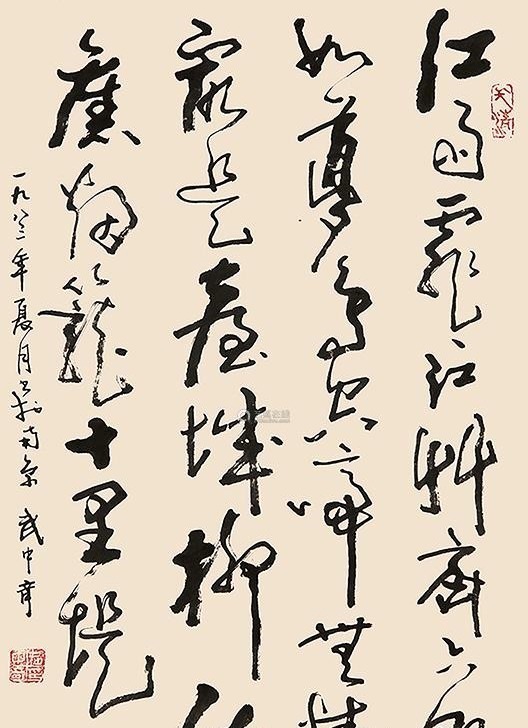 江雨霏江草齐六
如梦鸟空啼无情
最是台城柳依
旧烟笼十里堤
一九八三年夏月书于南京 武中奇